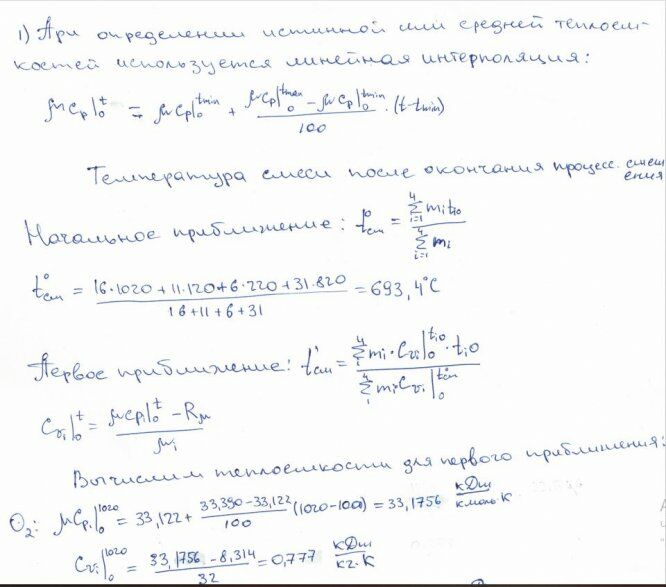 1) При определении истинной или средней теплоем-
костей используется линейная интерполяция:
μcp|₀ᵗ = μcp|₀ᵗᵐⁱⁿ + (μcp|₀ᵗᵐᵃˣ − μcp|₀ᵗᵐⁱⁿ)/100 · (t-tmin)
Температура смеси после окончания процесс. смеш
ения
Начальное приближение: t°см = Σ⁴ᵢ₌₁ mᵢtᵢ₀ / Σ⁴ᵢ₌₁ mᵢ
t°см = (16·1020+11·120+6·220+31·820)/(16+11+6+31) = 693,4°C
Первое приближение: t'см = Σ⁴ᵢ mᵢ·Cᵥᵢ|₀ᵗⁱ⁰·tᵢ₀ / Σ⁴ᵢ mᵢCᵥᵢ|₀ᵗ°ᶜᵐ
Cᵥᵢ|₀ᵗ = (μcpᵢ|₀ᵗ − Rμ)/μᵢ
Вычислим теплоемкости для первого приближения:
O₂: μCpᵢ|₀¹⁰²⁰ = 33,122 + (33,390-33,122)/100 (1020-1000) = 33,1756 кДж/кмоль·К
Cᵥᵢ|₀¹⁰²⁰ = (33,1756 − 8,314)/32 = 0,777 кДж/кг·К